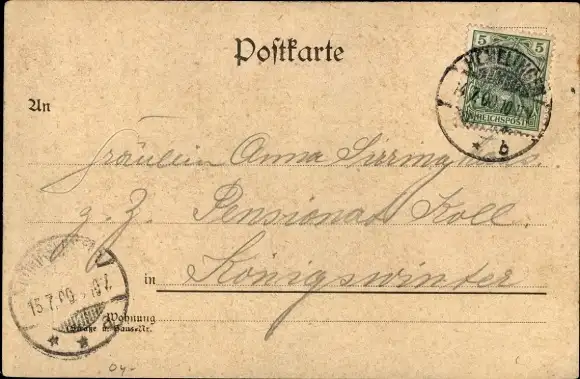 Postkarte
5 5
HEMELINGEN
14.7.00.10
REICHSPOST
* b
An
Fräulein Anna
z. Z. Pensionat Koll
in Königswinter
15.7.00
* *
Wohnung
(Straße u. Hausnr.)
04-